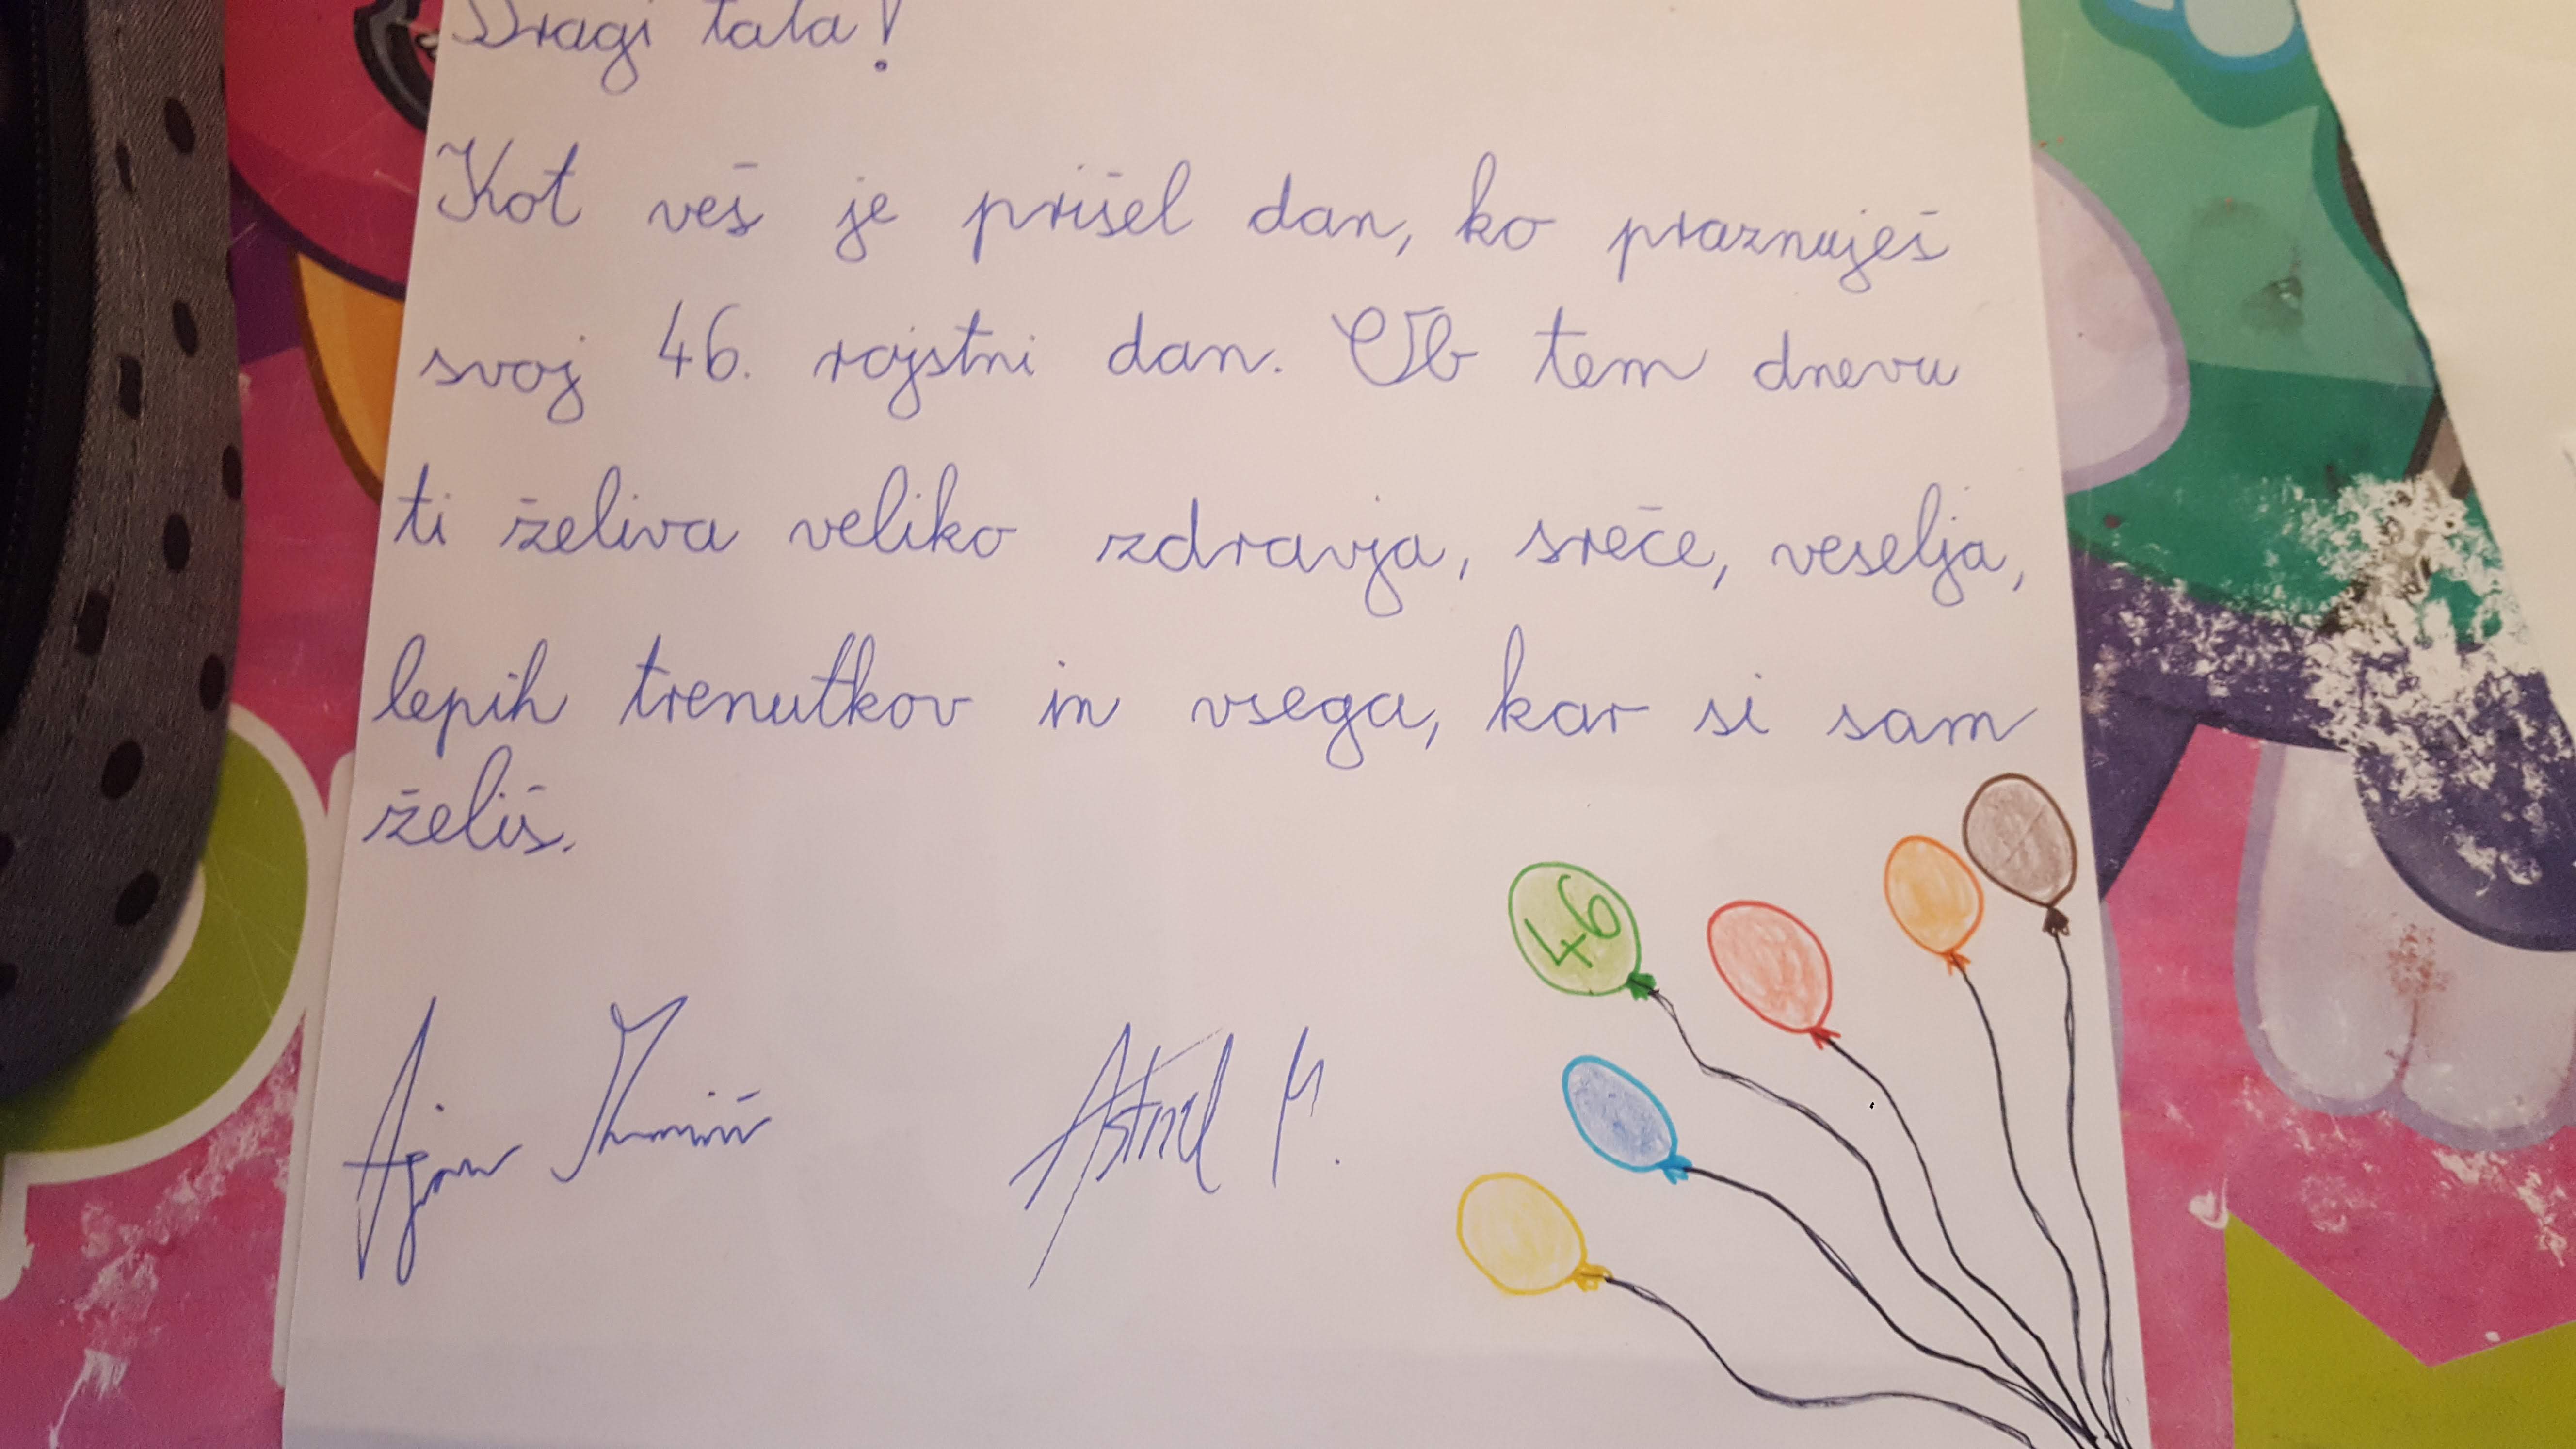 Dragi tata!
Kot veš je prišel dan, ko praznuješ
svoj 46. rojstni dan. Ob tem dnevu
ti želiva veliko zdravja, sreče, veselja,
lepih trenutkov in vsega, kar si sam
želiš.
46
Astrid M.